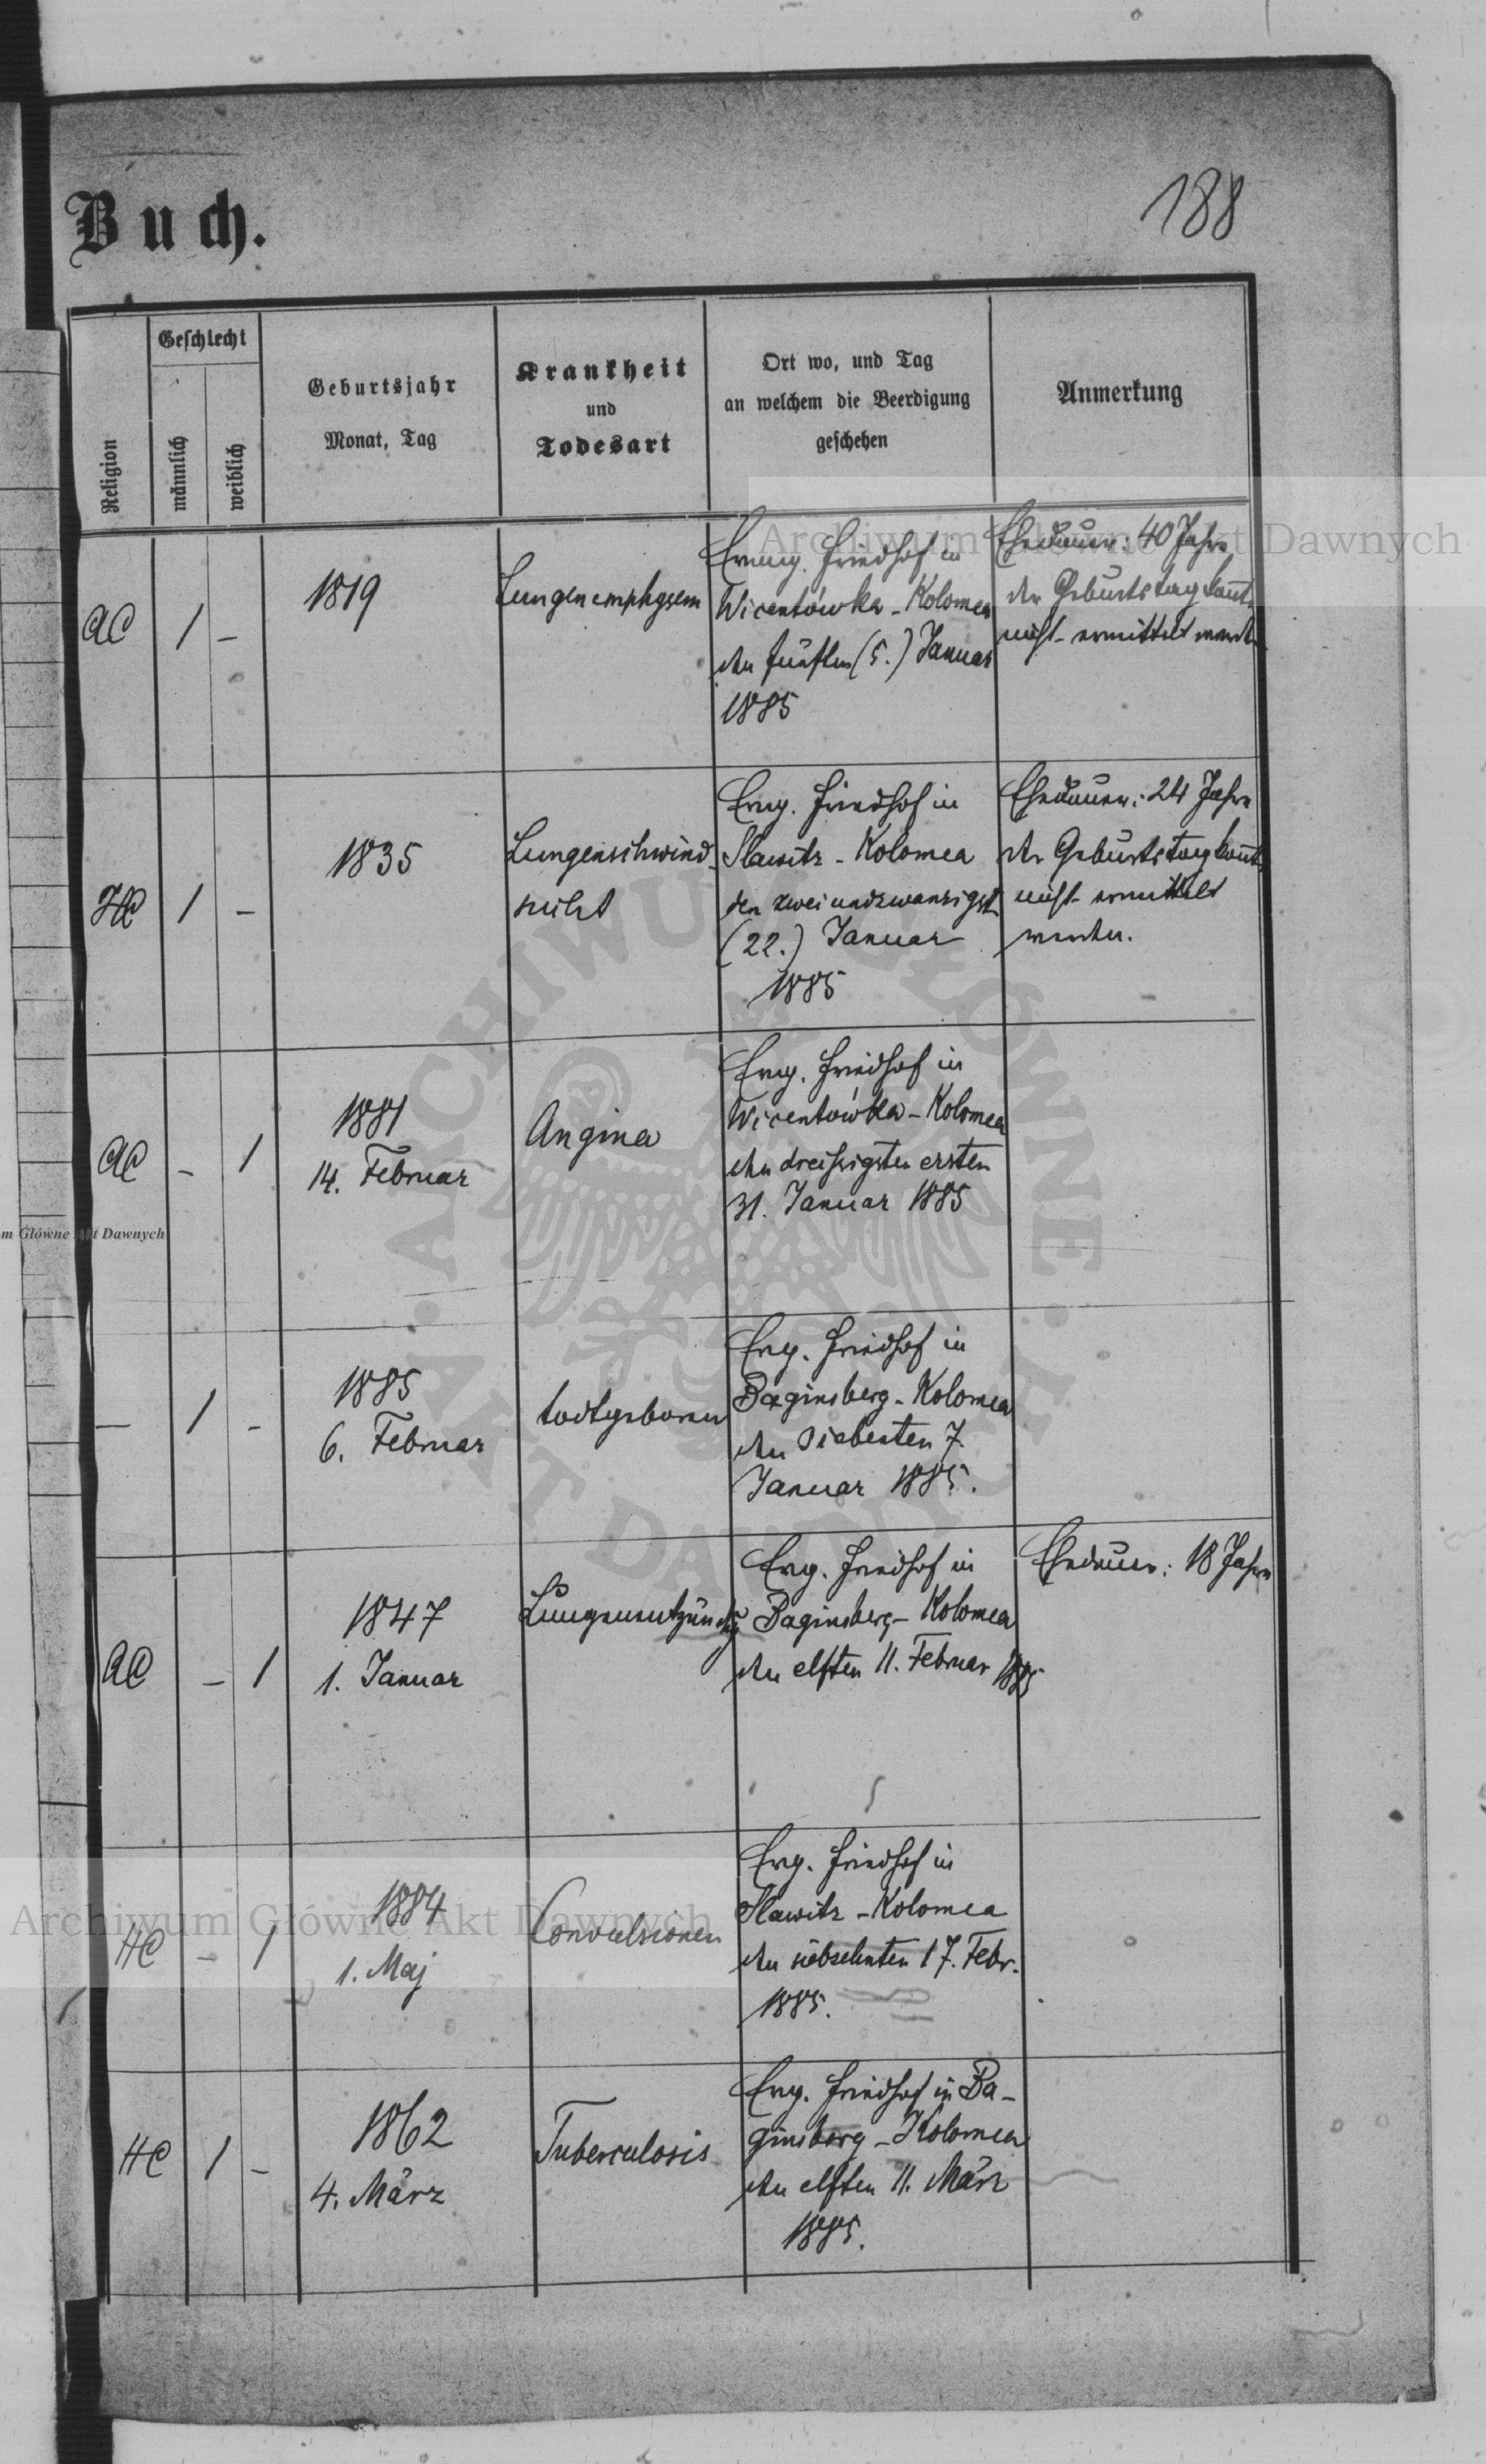 188
Buch.
Religion
Geschlecht
männlich
weiblich
Geburtsjahr
Monat, Tag
Krankheit
und
Todesart
Ort wo, und Tag
an welchem die Beerdigung
geschehen
Anmerkung
AC
1
–
1819
Lungenemphysem
Evang. Friedhof in
Wicentówka - Kolomea
den fünften (5.) Januar
1885
Ehedauer: 40 Jahre
der Geburtstag konnte
nicht ermittelt werden
HC
1
–
1835
Lungenschwind
sucht
Evg. Friedhof in
Slawitz - Kolomea
den zweiundzwanzigst
(22.) Januar
1885
Ehedauer: 24 Jahre
der Geburtstag konnte
nicht ermittelt
werden.
AC
–
1
1881
14. Februar
Angina
Evg. Friedhof in
Wicentówka - Kolomea
den dreissigsten ersten
31. Januar 1885
–
1
–
1885
6. Februar
todtgeboren
Evg. Friedhof in
Baginsberg - Kolomea
den siebenten 7.
Januar 1885.
AC
–
1
1847
1. Januar
Lungenentzündg
Evg. Friedhof in
Baginsberg - Kolomea
den elften 11. Februar 1885
Ehedauer: 18 Jahre
HC
–
1
1884
1. Maj
Convulsionen
Evg. Friedhof in
Slawitz - Kolomea
den siebzehnten 17. Febr.
1885.
HC
1
–
1862
4. März
Tuberculosis
Evg. Friedhof in Ba-
ginsberg - Kolomea
den elften 11. März
1885.
Archiwum Główne Akt Dawnych
m Główne Akt Dawnych
ARCHIWUM GŁÓWNE
AKT DAWNYCH
Archiwum Główne Akt Dawnych